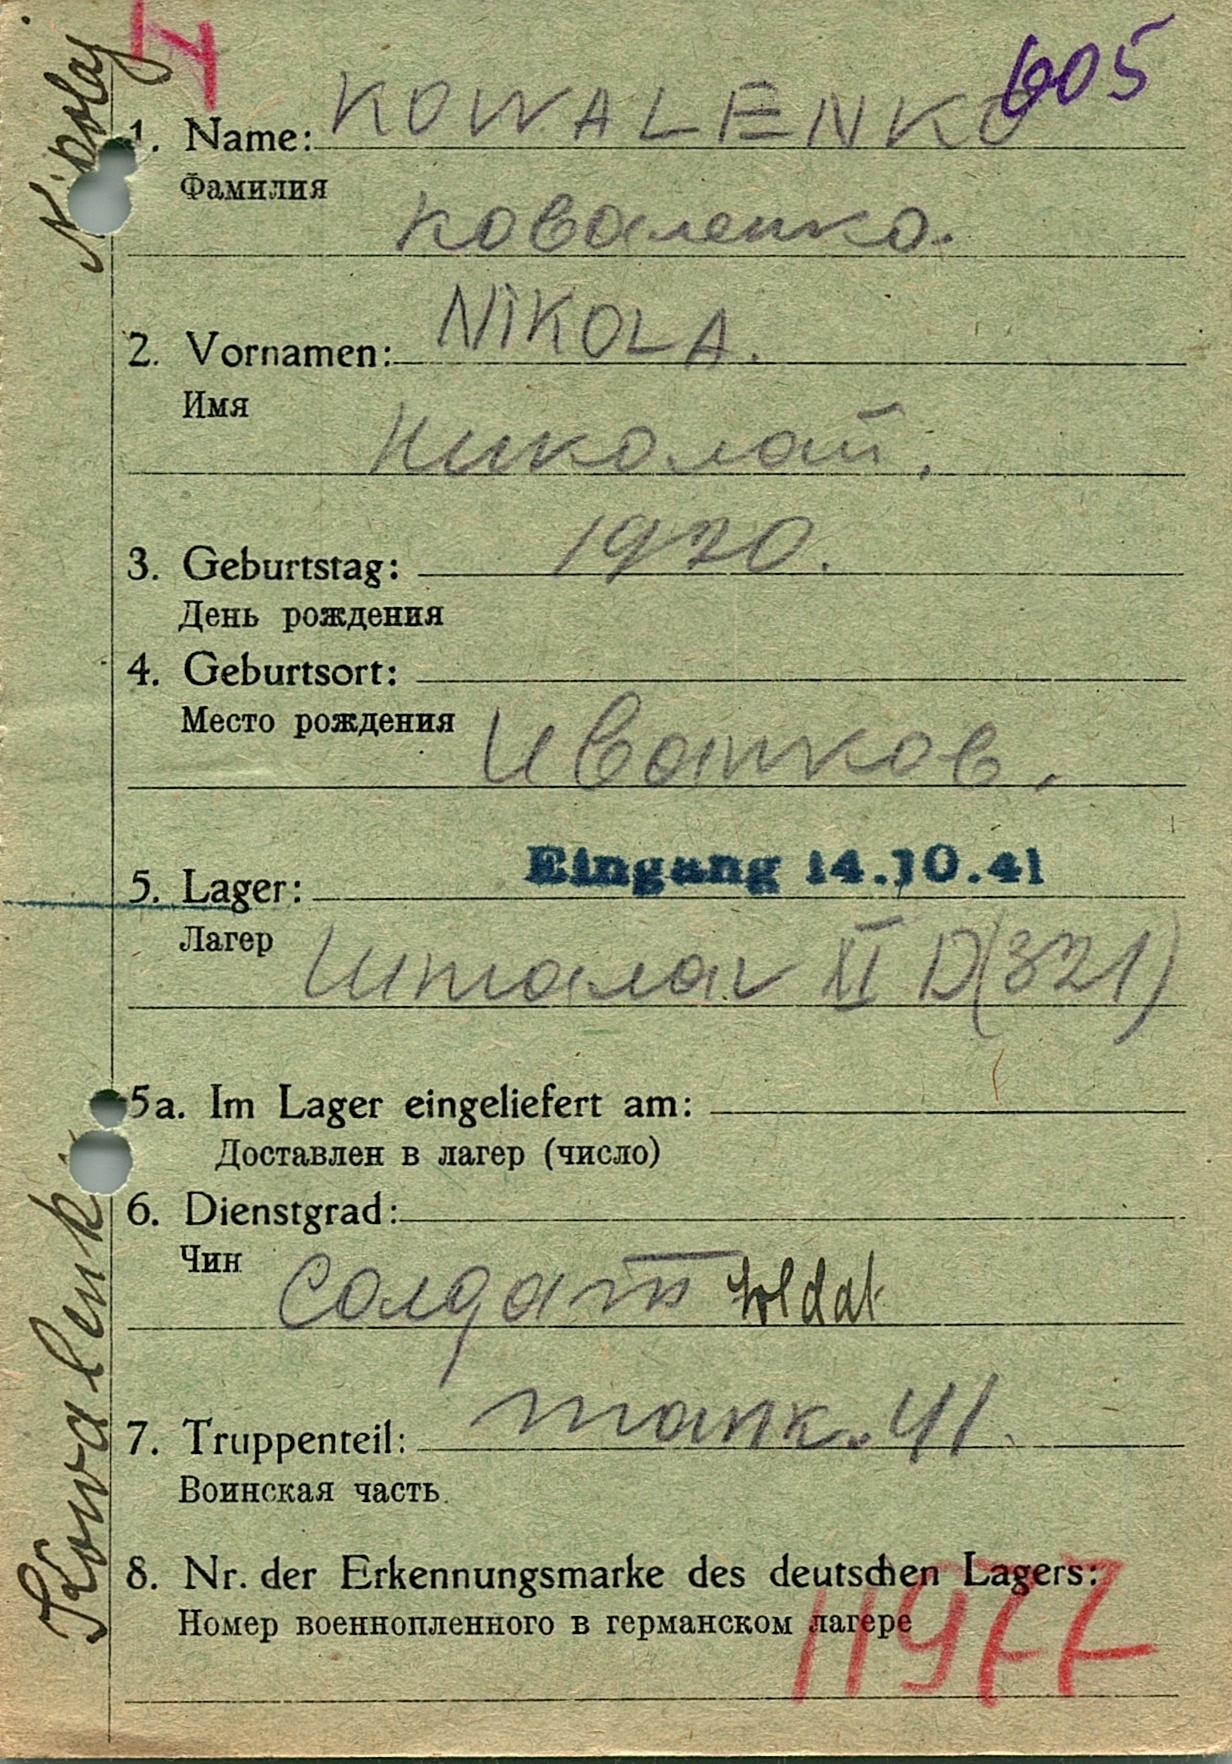 605
1. Name: KOWALENKO
Фамилия
Коваленко.
2. Vornamen: NIKOLA.
Имя
Николай,
3. Geburtstag: 1920.
День рождения
4. Geburtsort:
Место рождения
Иватков.
Eingang 14.10.41
5. Lager:
Лагер
Шталаг XI D(321)
5a. Im Lager eingeliefert am:
Доставлен в лагер (число)
6. Dienstgrad:
Чин
Солдат Soldat
7. Truppenteil: танк. 41.
Воинская часть
8. Nr. der Erkennungsmarke des deutschen Lagers:
Номер военнопленного в германском лагере
11977
Kowalenko
Nikolaj